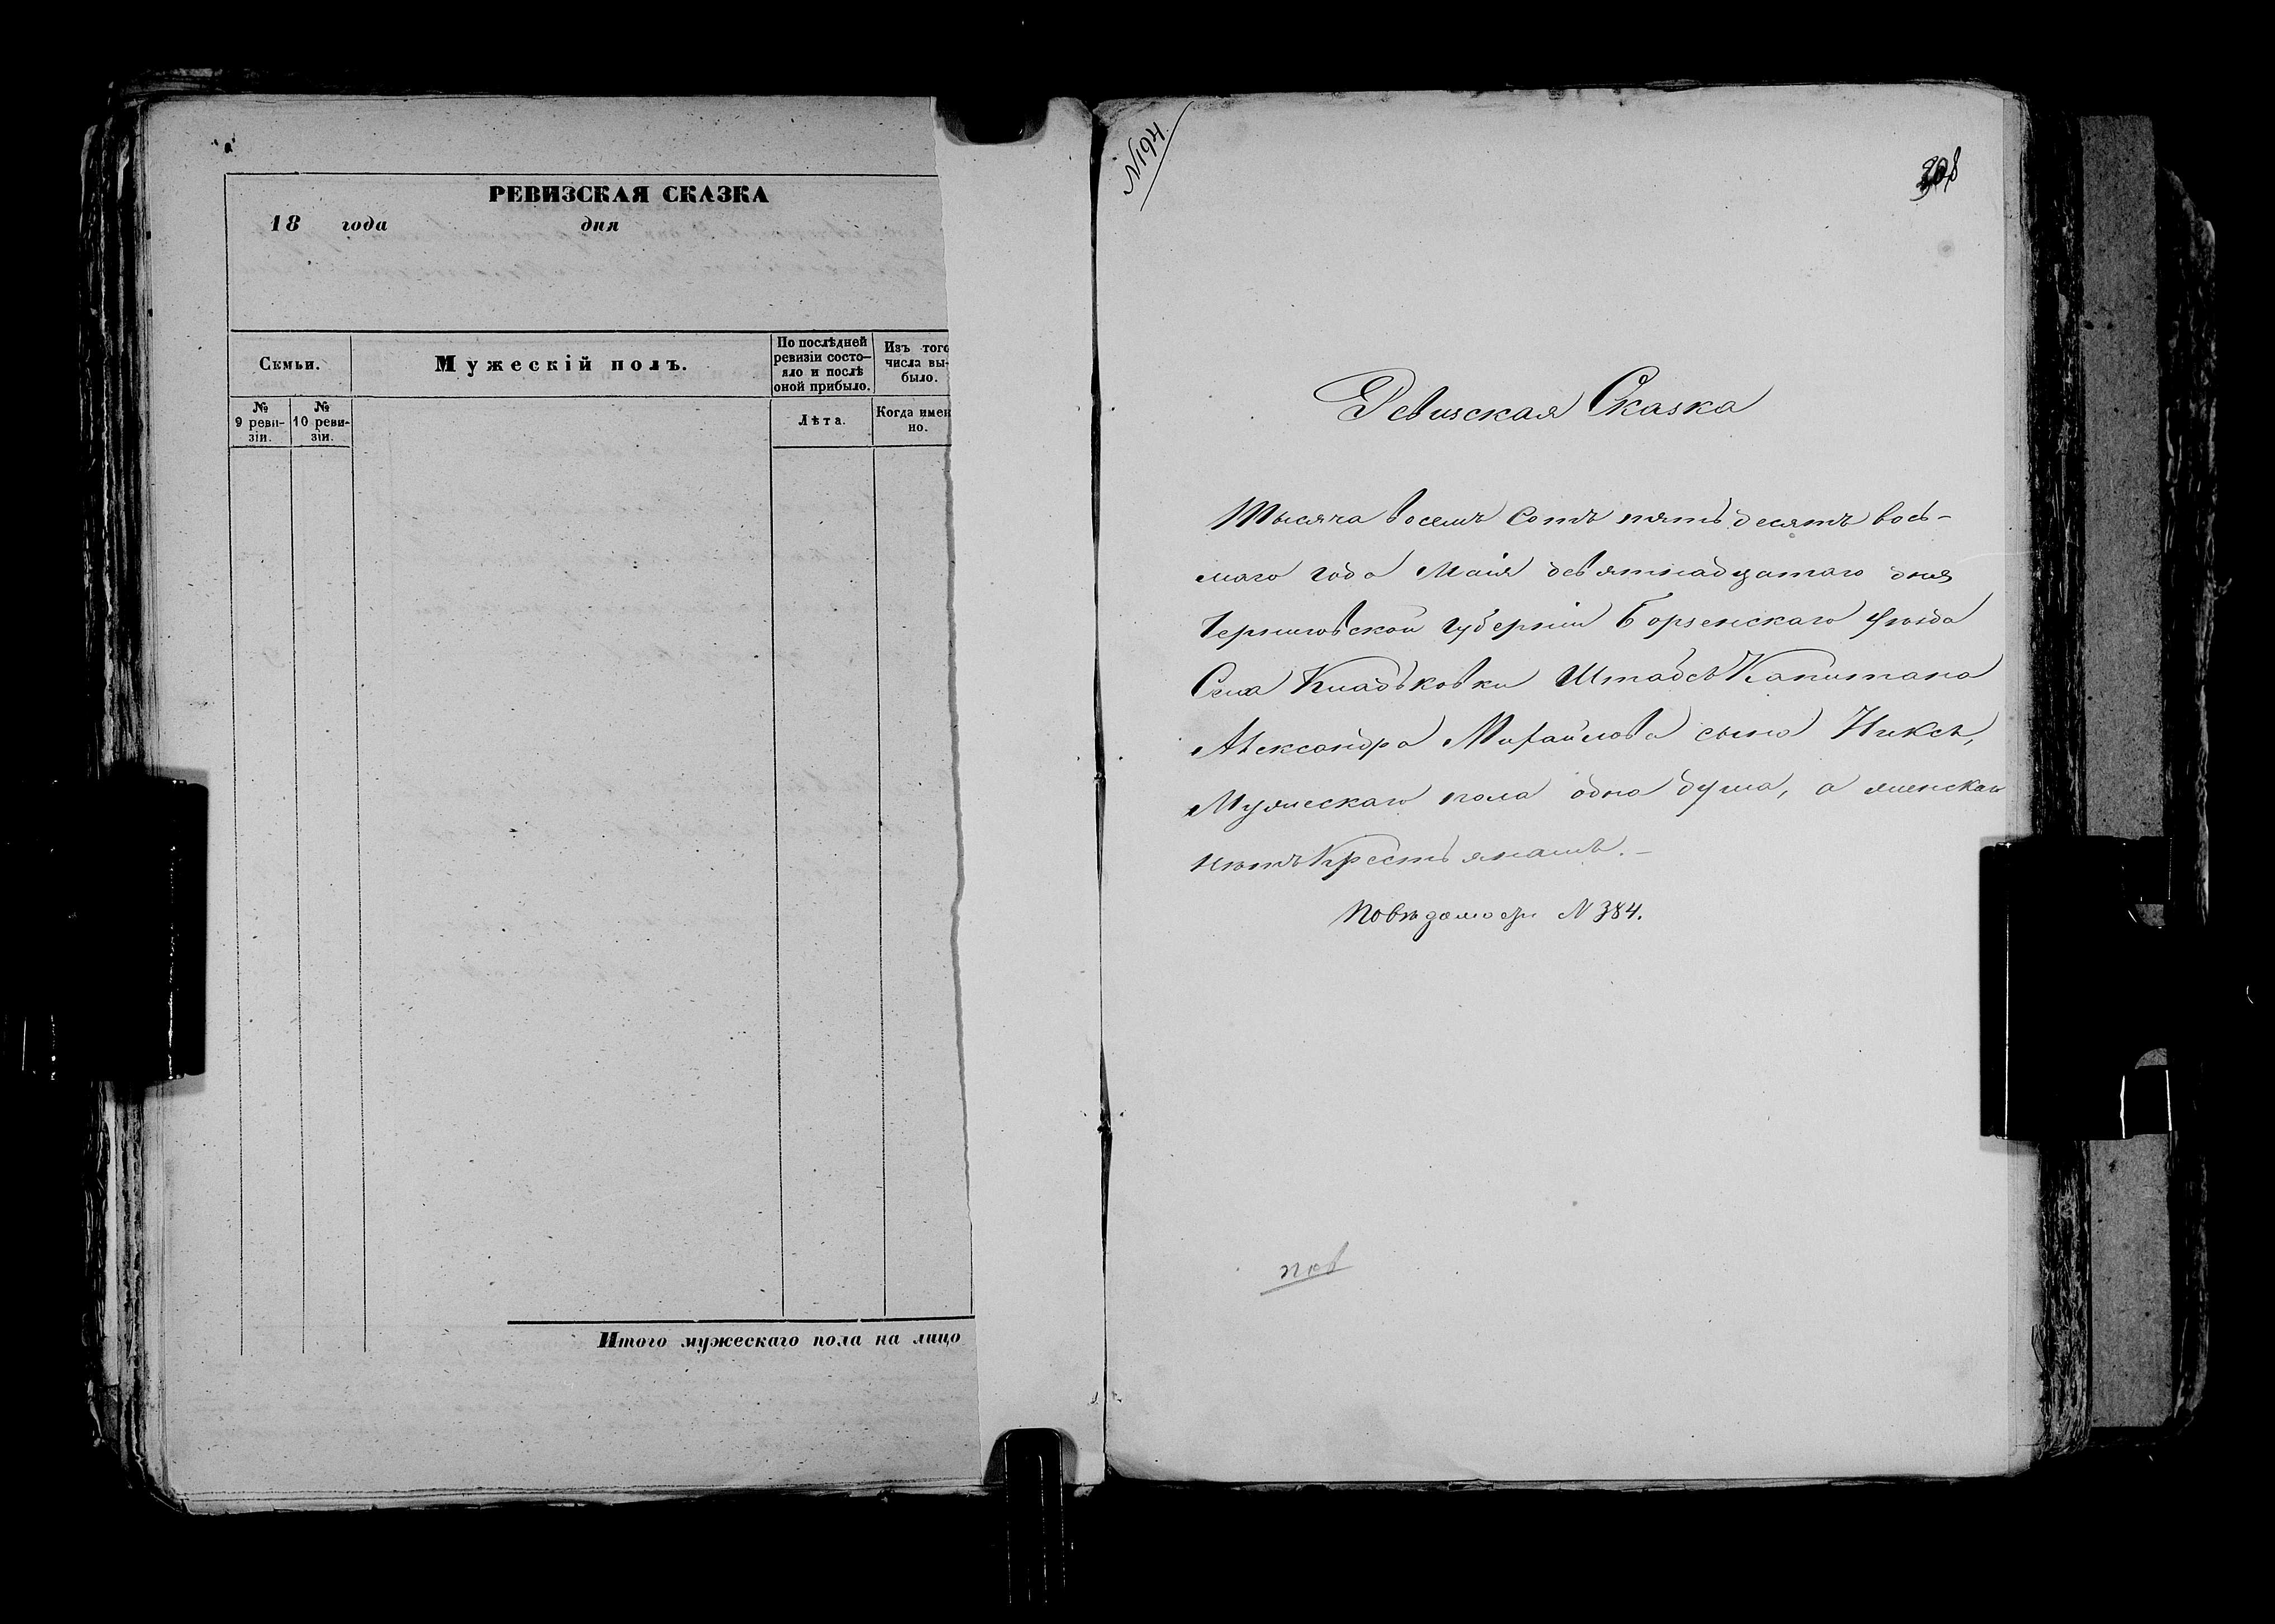 РЕВИЗСКАЯ СКАЗКА
18 года дня
Семьи.
Мужескій полъ.
По послѣдней
ревизіи состо-
яло и послѣ
оной прибыло.
Изъ того
числа вы-
было.
№
9 реви-
зіи.
№
10 реви-
зіи.
Лѣта.
Когда имен
но.
Итого мужескаго пола на лицо
N194
Ревизская Сказка
Тысяча восемъ Сотъ пятьдесятъ вось-
маго года Маія девятнадцатаго дня
Черниговской губерніи Борзенскаго уѣзда
Села Кладьковки Штабсъ Капитана
Александра Михайлова сына
Мужескаго пола одна душа, а женскаго
нѣтъ Крестьянамъ.-
По вѣдомости N 384.
пов